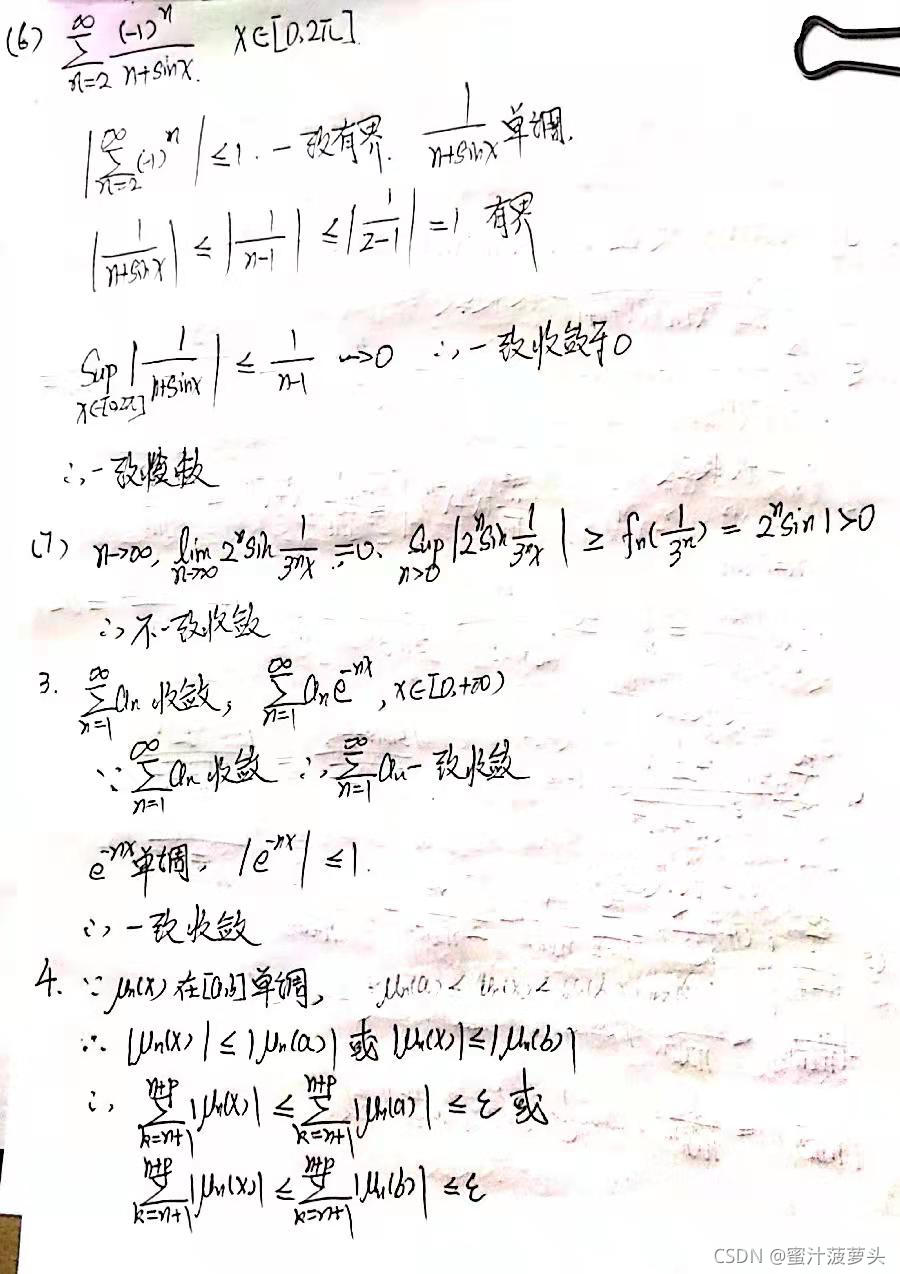 (6) $\sum_{n=2}^{\infty} \frac{(-1)^n}{n+\sin x}$ x∈[0,2π]
$\left|\sum_{n=2}^{\infty} (-1)^n\right| \leq 1$. 一致有界. $\frac{1}{n+\sin x}$ 单调.
$\left|\frac{1}{n+\sin x}\right| \leq \left|\frac{1}{n-1}\right| \leq \left|\frac{1}{2-1}\right| = 1$ 有界
$\sup_{x\in[0,2\pi]} \left|\frac{1}{n+\sin x}\right| \leq \frac{1}{n-1} \to 0$ ∴一致收敛于0
∴一致收敛
(7) n→∞, $\lim_{n\to\infty} 2^n \sin\frac{1}{3^n x} = 0$. $\sup_{n>0} \left|2^n \sin\frac{1}{3^n x}\right| \geq f_n(\frac{1}{3^n}) = 2^n \sin 1 > 0$
∴不一致收敛
3. $\sum_{n=1}^{\infty} a_n$ 收敛, $\sum_{n=1}^{\infty} a_n e^{-nx}$, x∈[0,+∞)
∵ $\sum_{n=1}^{\infty} a_n$ 收敛 ∴ $\sum_{n=1}^{\infty} a_n$ 一致收敛
$e^{-nx}$ 单调, $|e^{-nx}| \leq 1$.
∴一致收敛
4. ∵ $\mu_n(x)$ 在[a,b]单调,
∴ $|\mu_n(x)| \leq |\mu_n(a)|$ 或 $|\mu_n(x)| \leq |\mu_n(b)|$
∴ $\sum_{k=n+1}^{n+p} |\mu_n(x)| \leq \sum_{k=n+1}^{n+p} |\mu_n(a)| \leq \varepsilon$ 或
$\sum_{k=n+1}^{n+p} |\mu_n(x)| \leq \sum_{k=n+1}^{n+p} |\mu_n(b)| \leq \varepsilon$
CSDN @蜜汁菠萝头